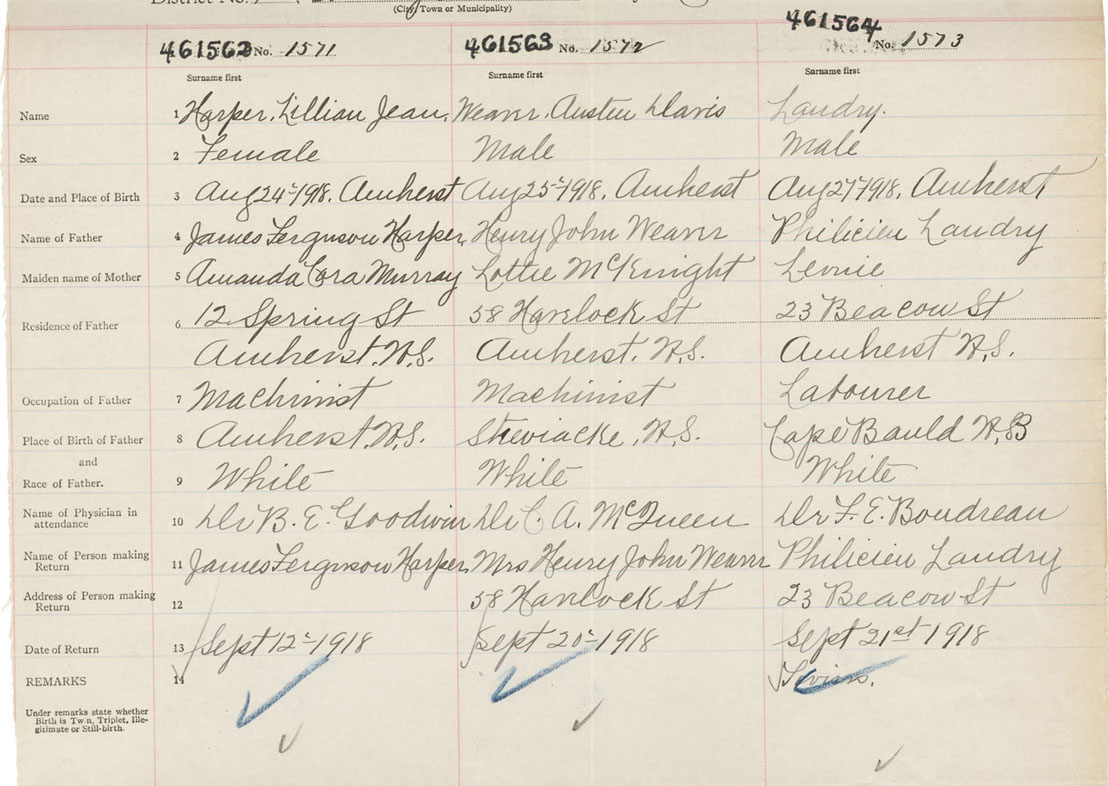 District No.
(City, Town or Municipality)
461562 No. 1571 461563 No. 1572 461564 No. 1573
Surname first Surname first Surname first
Name 1 Harper, Lillian Jean, Weaver, Austen Davis Landry.
Sex 2 Female Male Male
Date and Place of Birth 3 Aug 24-1918, Amherst Aug 25-1918, Amherst Aug 27-1918, Amherst
Name of Father 4 James Ferguson Harper Henry John Weaver Philicien Landry
Maiden name of Mother 5 Amanda Cora Murray Lottie McKnight
Residence of Father 6 12 Spring St 58 Havelock St 23 Beacon St
Amherst, N.S. Amherst, N.S. Amherst N.S.
Occupation of Father 7 Machinist Machinist Labourer
Place of Birth of Father 8 Amherst, N.S. Stewiacke, N.S. Cape Bauld N.B
and
Race of Father. 9 White White White
Name of Physician in
attendance 10 Dr B. E. Goodwin Dr C. A. McQueen Dr F. E. Boudreau
Name of Person making
Return 11 James Ferguson Harper Mrs Henry John Weaver Philicien Landry
Address of Person making
Return 12 58 Havelock St 23 Beacon St
Date of Return 13 Sept 12-1918 Sept 20-1918 Sept 21st 1918
REMARKS 14 Twins.
Under remarks state whether
Birth is Twin, Triplet, Ille-
gitimate or Still-birth.